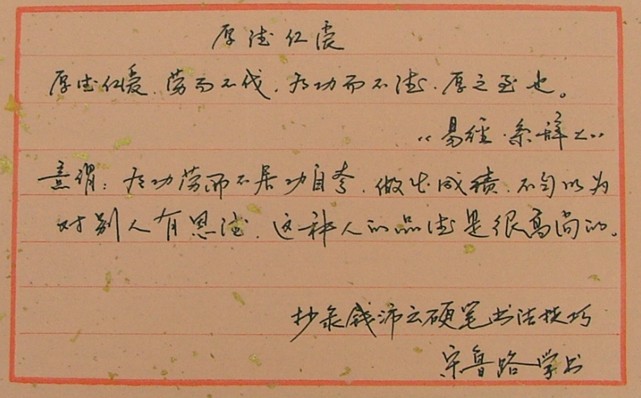 厚德仁爱
厚德仁爱、劳而不伐、有功而不德、厚之至也。
《易经·系辞上》
意谓：有功劳而不居功自夸、做出成绩、不自以为
对别人有恩德、这种人的品德是很高尚的。
抄录钱沛云硬笔书法技巧
宋鲁路学书